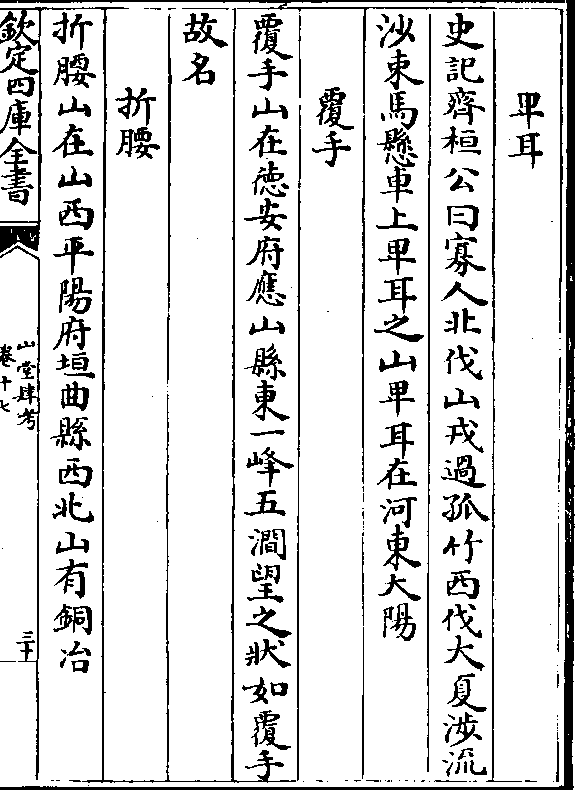 卑耳
史記齊桓公曰寡人北伐山戎過孤竹西伐大夏涉流
沙束馬懸車上卑耳之山卑耳在河東大陽
覆手
覆手山在德安府應山縣東一峰五澗望之狀如覆手
故名
折腰
折腰山在山西平陽府垣曲縣西北山有銅冶
欽定四庫全書
山堂肆考
卷十七
三十